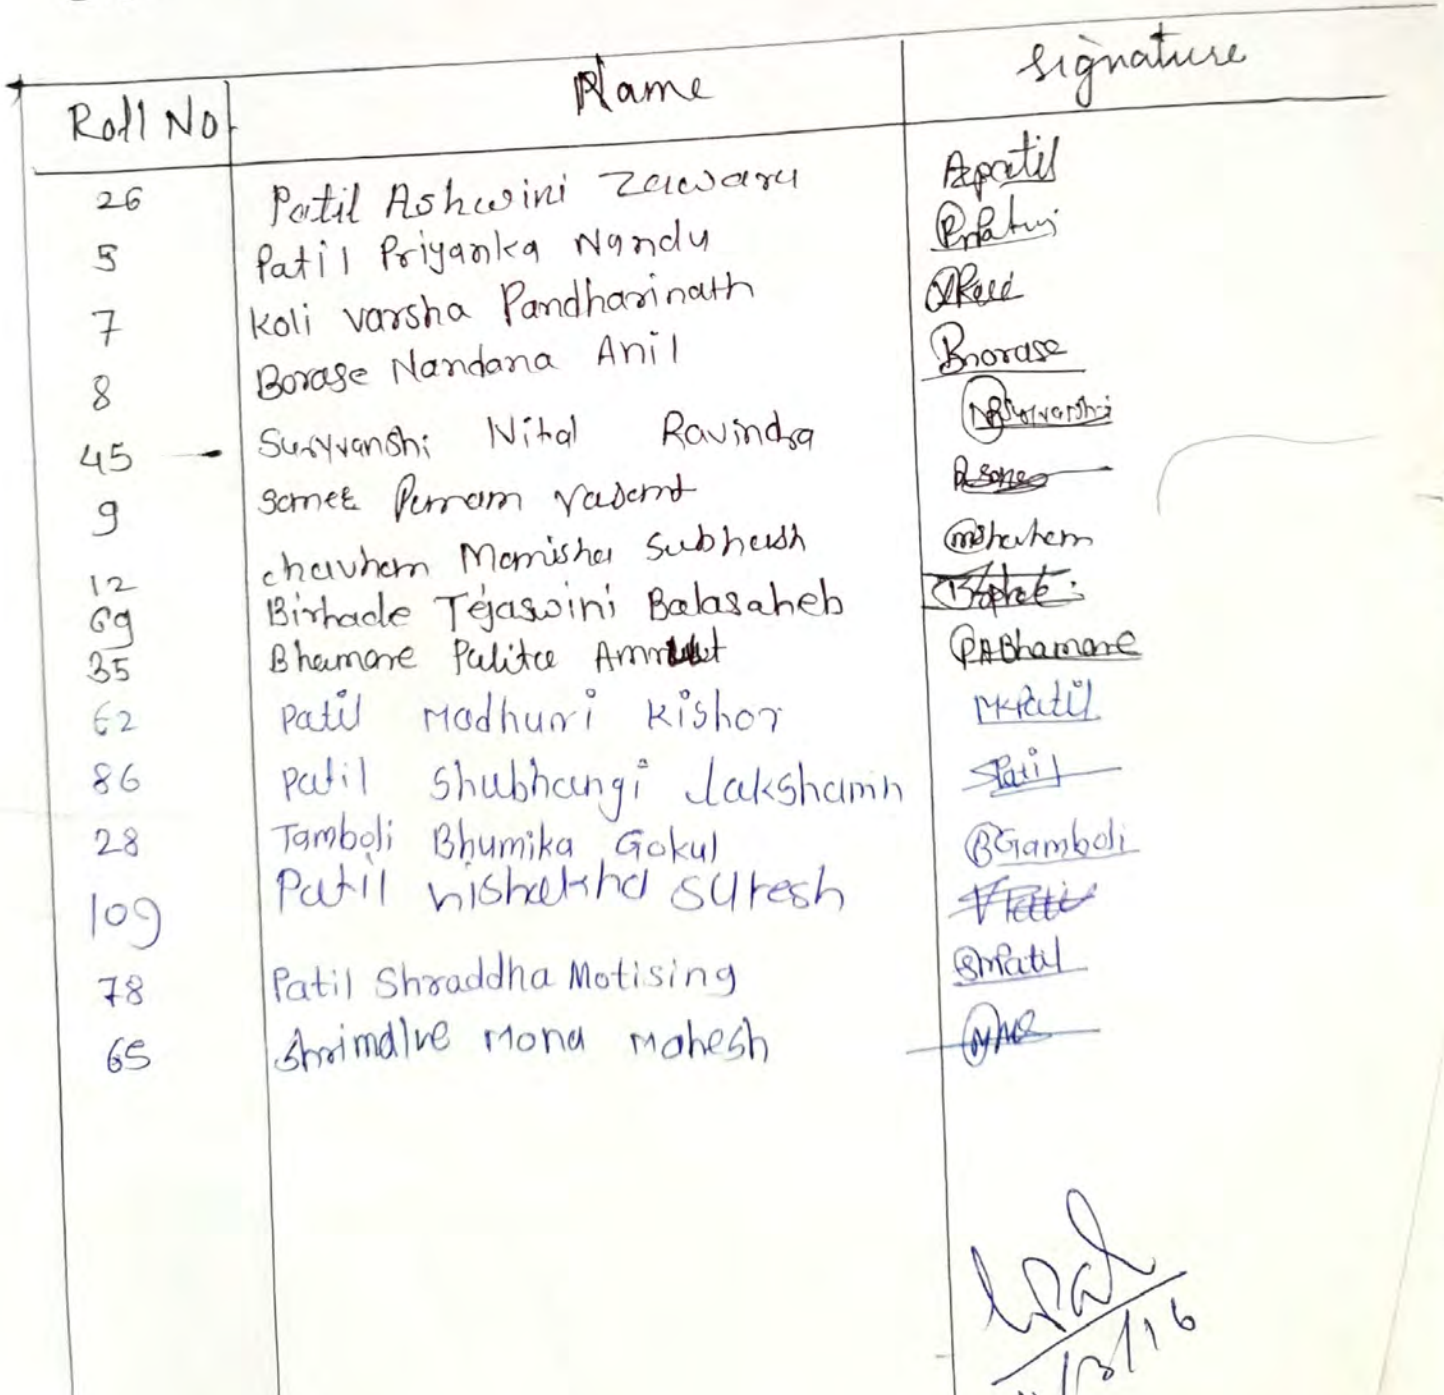 Roll No Name Signature
26 Patil Ashwini Zawaru Azpatil
5 Patil Priyanka Nandu
7 Koli varsha Pandharinath
8 Borase Nandana Anil Bnorase
45 Suryvanshi Nital Ravindra NRSuryvanshi
9 Vasant
12 chauhan Manisha Subhash
69 Birhade Tejaswini Balasaheb
35 Bhamare Palita PABhamare
62 Patil Madhuri Kishor MKPatil
86 Patil Shubhangi Lakshamn SPatil
28 Tamboli Bhumika Gokul BGTamboli
109 Patil vishakha Suresh
78 Patil Shraddha Motising SMPatil
65 Mona Mahesh
/3/16